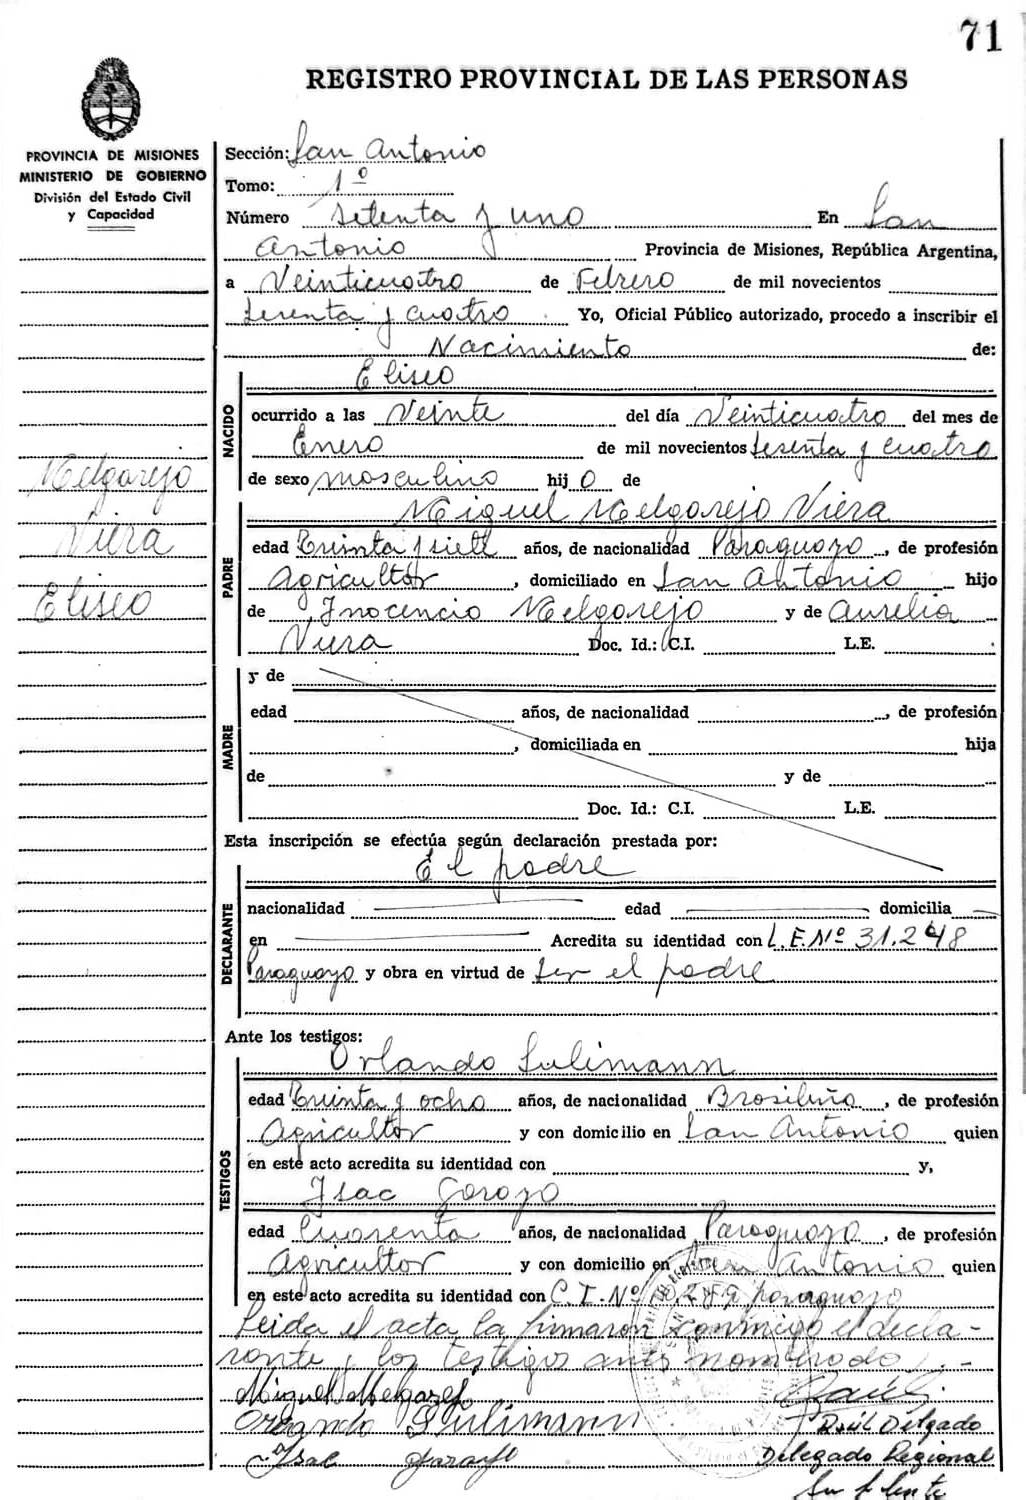 71
REGISTRO PROVINCIAL DE LAS PERSONAS
PROVINCIA DE MISIONES
MINISTERIO DE GOBIERNO
División del Estado Civil
y Capacidad
Sección: San Antonio
Tomo: 1º
Número Setenta y uno En San
Antonio Provincia de Misiones, República Argentina,
a Veinticuatro de Febrero de mil novecientos
sesenta y cuatro Yo, Oficial Público autorizado, procedo a inscribir el
Nacimiento de:
NACIDO
Eliseo
ocurrido a las Veinte del día Veinticuatro del mes de
Enero de mil novecientos sesenta y cuatro
de sexo masculino hij o de
Melgarejo
Viera
Eliseo
PADRE
Miguel Melgarejo Viera
edad Treinta y siete años, de nacionalidad Paraguayo, de profesión
Agricultor, domiciliado en San Antonio hijo
de Inocencio Melgarejo y de Aurelia
Viera Doc. Id.: C.I. L.E.
MADRE
y de
edad años, de nacionalidad , de profesión
, domiciliada en hija
de y de
Doc. Id.: C.I. L.E.
Esta inscripción se efectúa según declaración prestada por:
DECLARANTE
El padre
nacionalidad edad domicilia
en Acredita su identidad con L.E.Nº 31.248
Paraguayo y obra en virtud de ser el padre
Ante los testigos:
TESTIGOS
Orlando Sulimann
edad Treinta y ocho años, de nacionalidad Brasileña, de profesión
Agricultor y con domicilio en San Antonio quien
en este acto acredita su identidad con y,
Isac Garayo
edad Cuarenta años, de nacionalidad Paraguayo, de profesión
Agricultor y con domicilio en San Antonio quien
en este acto acredita su identidad con C.I.Nº paraguayo
Leida el acta la firmaron conmigo el decla-
rante y los testigos antes nombrados.-
Miguel Melgarejo
Orlando Sulimann Raúl Delgado
Isac Garayo Delegado Regional